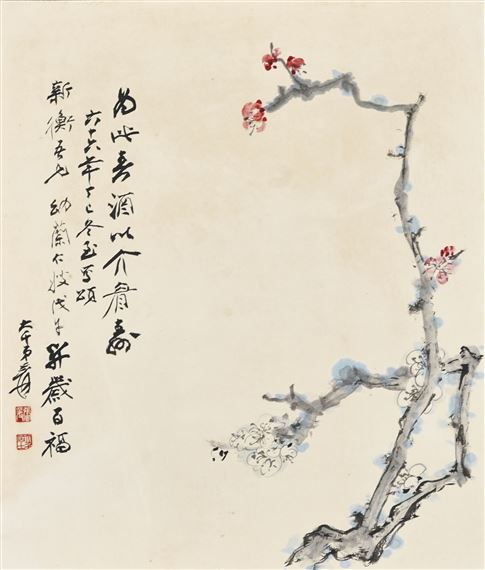 為此春酒以介眉壽
六十六年丁巳冬至寫頌
新衡吾兄幼蘭仁嫂戊午歲百福
大千弟爰